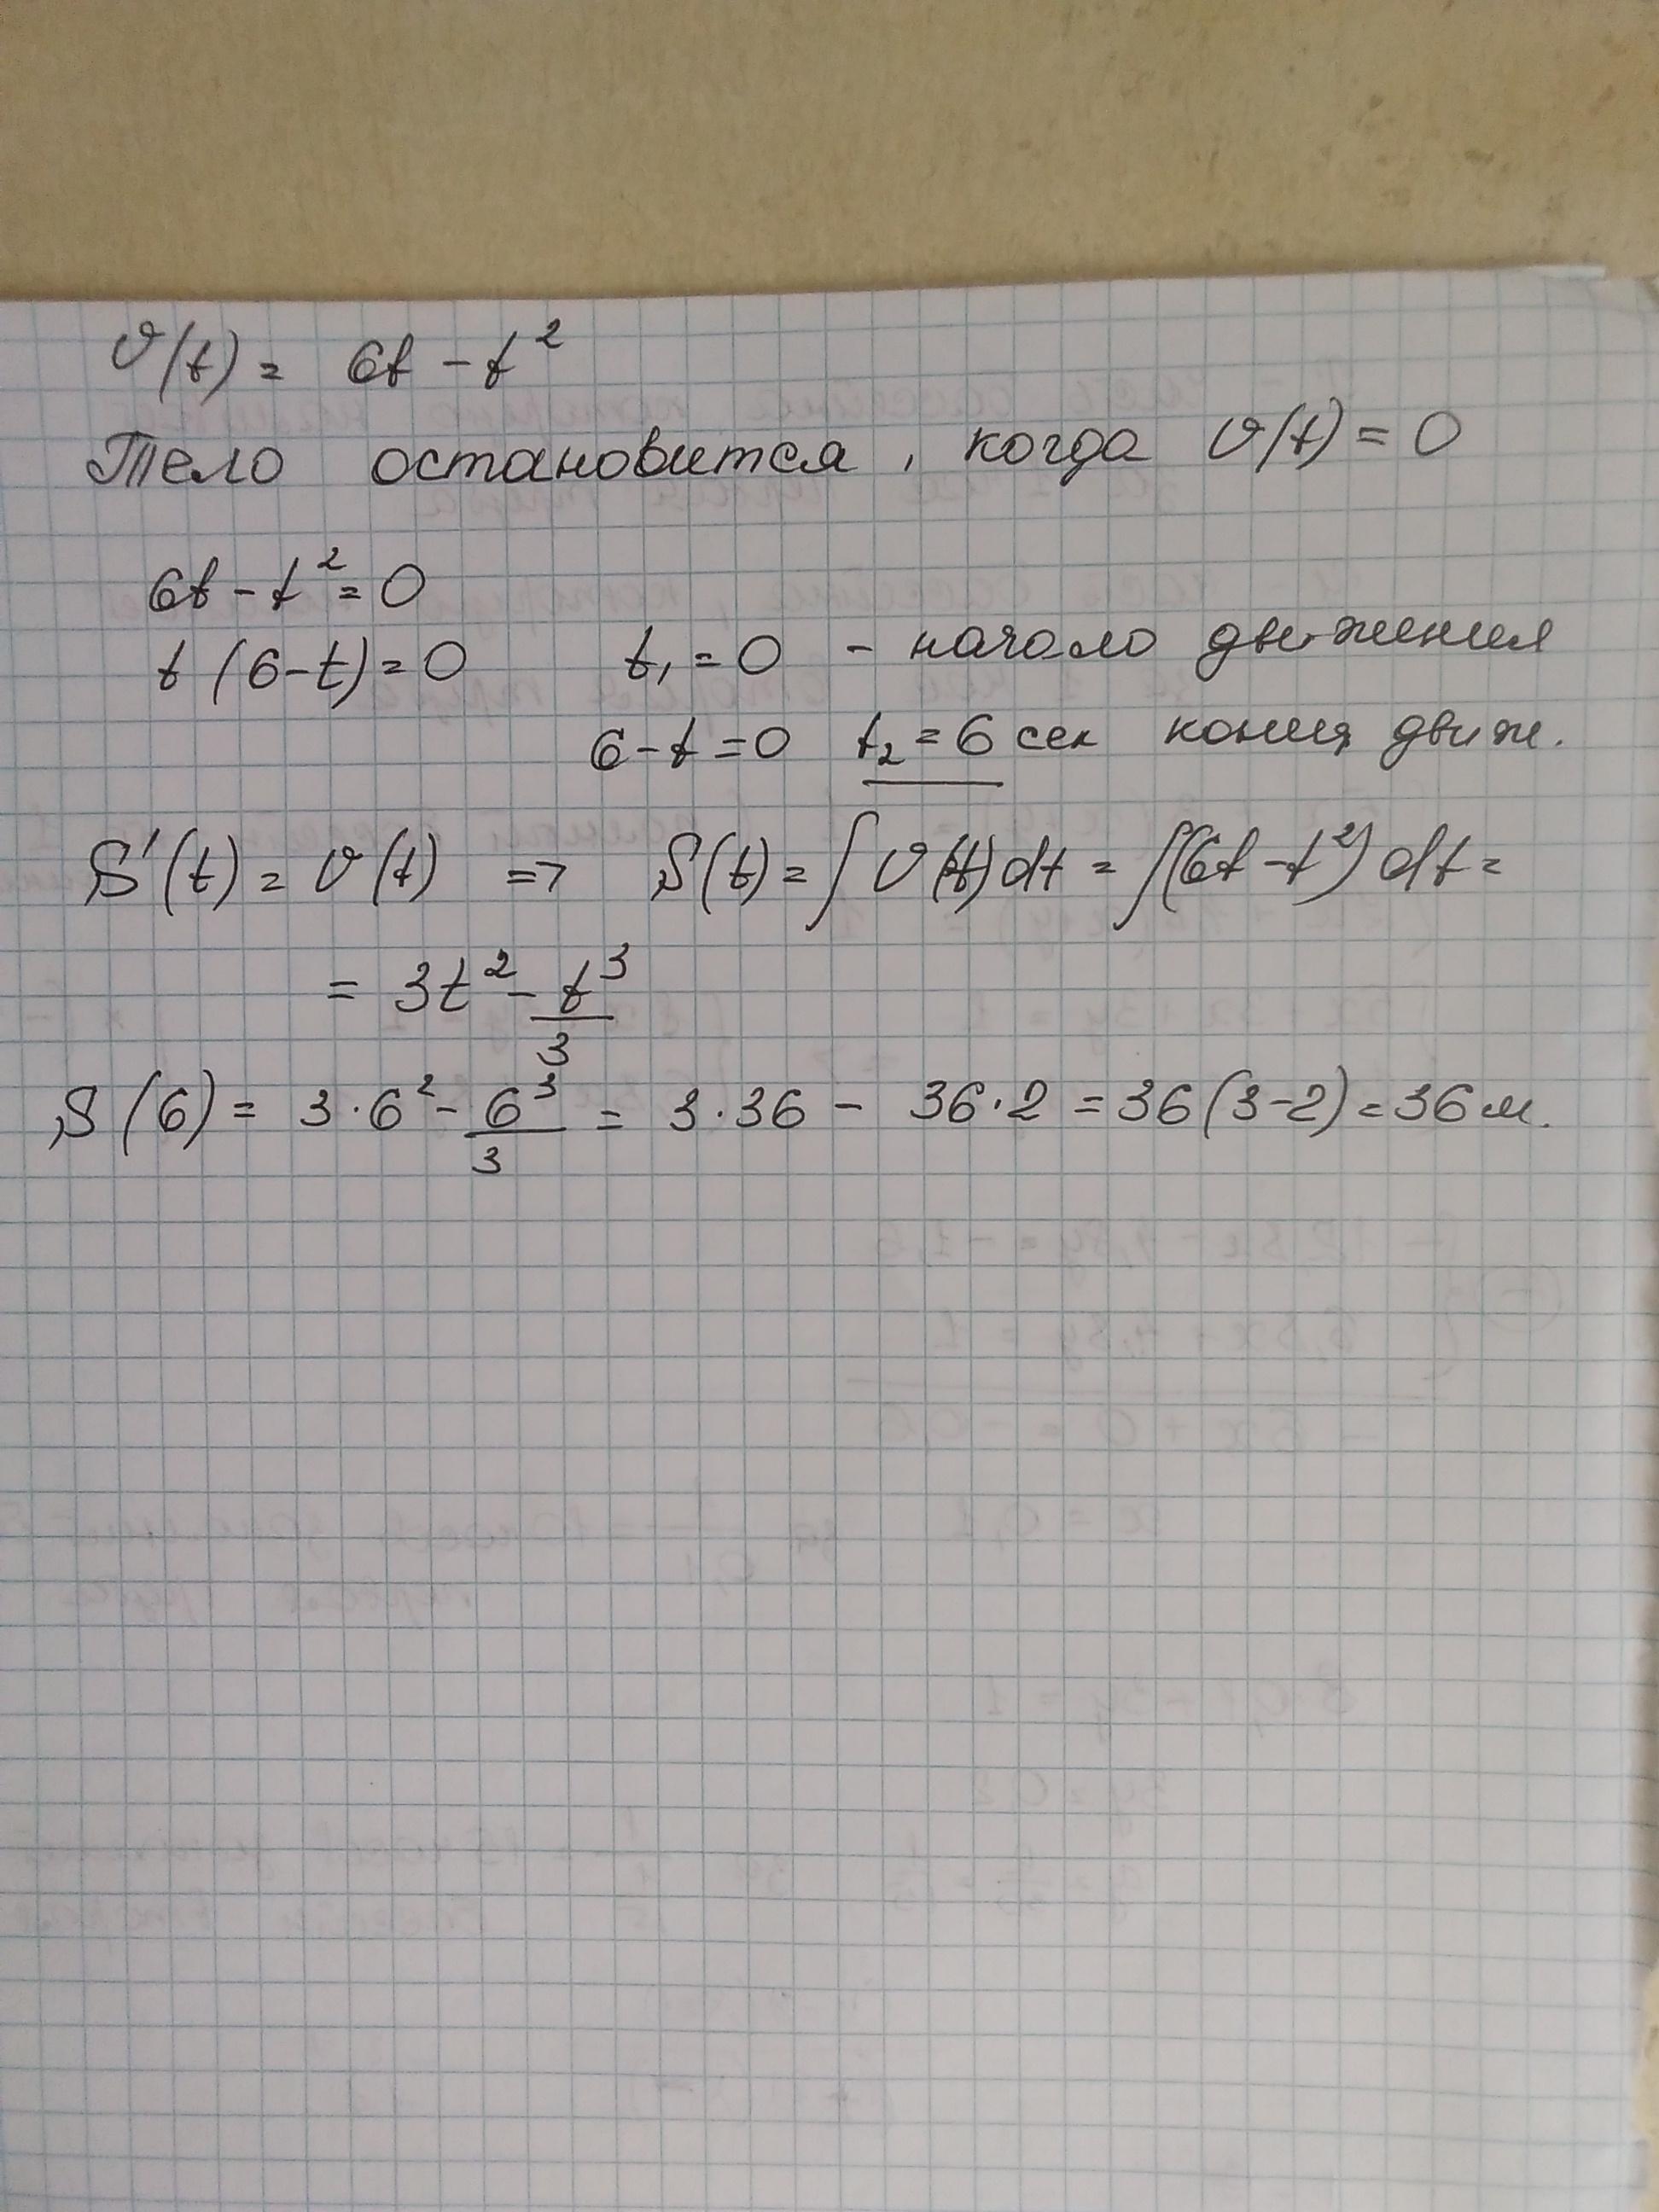 v(t) = 6t - t²
Тело остановится, когда v(t) = 0
6t - t² = 0
t(6-t) = 0 t₁ = 0 - начало движения
6-t=0 t₂ = 6 сек конец движ.
S'(t) = v(t) => S(t) = ∫v(t)dt = ∫(6t-t²)dt =
= 3t² - t³/3
S(6) = 3·6² - 6³/3 = 3·36 - 36·2 = 36(3-2) = 36 м.